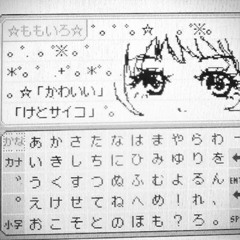 ☆ももいろ☆
☆「かわいい」
「けとサイコ」
かな あかさたなはまやらわ
カナ いきしちにひみゆりを
゛うくすつぬふむよるん
゜えけせてねへめ!れ、
小字 おこそとのほも?ろ。